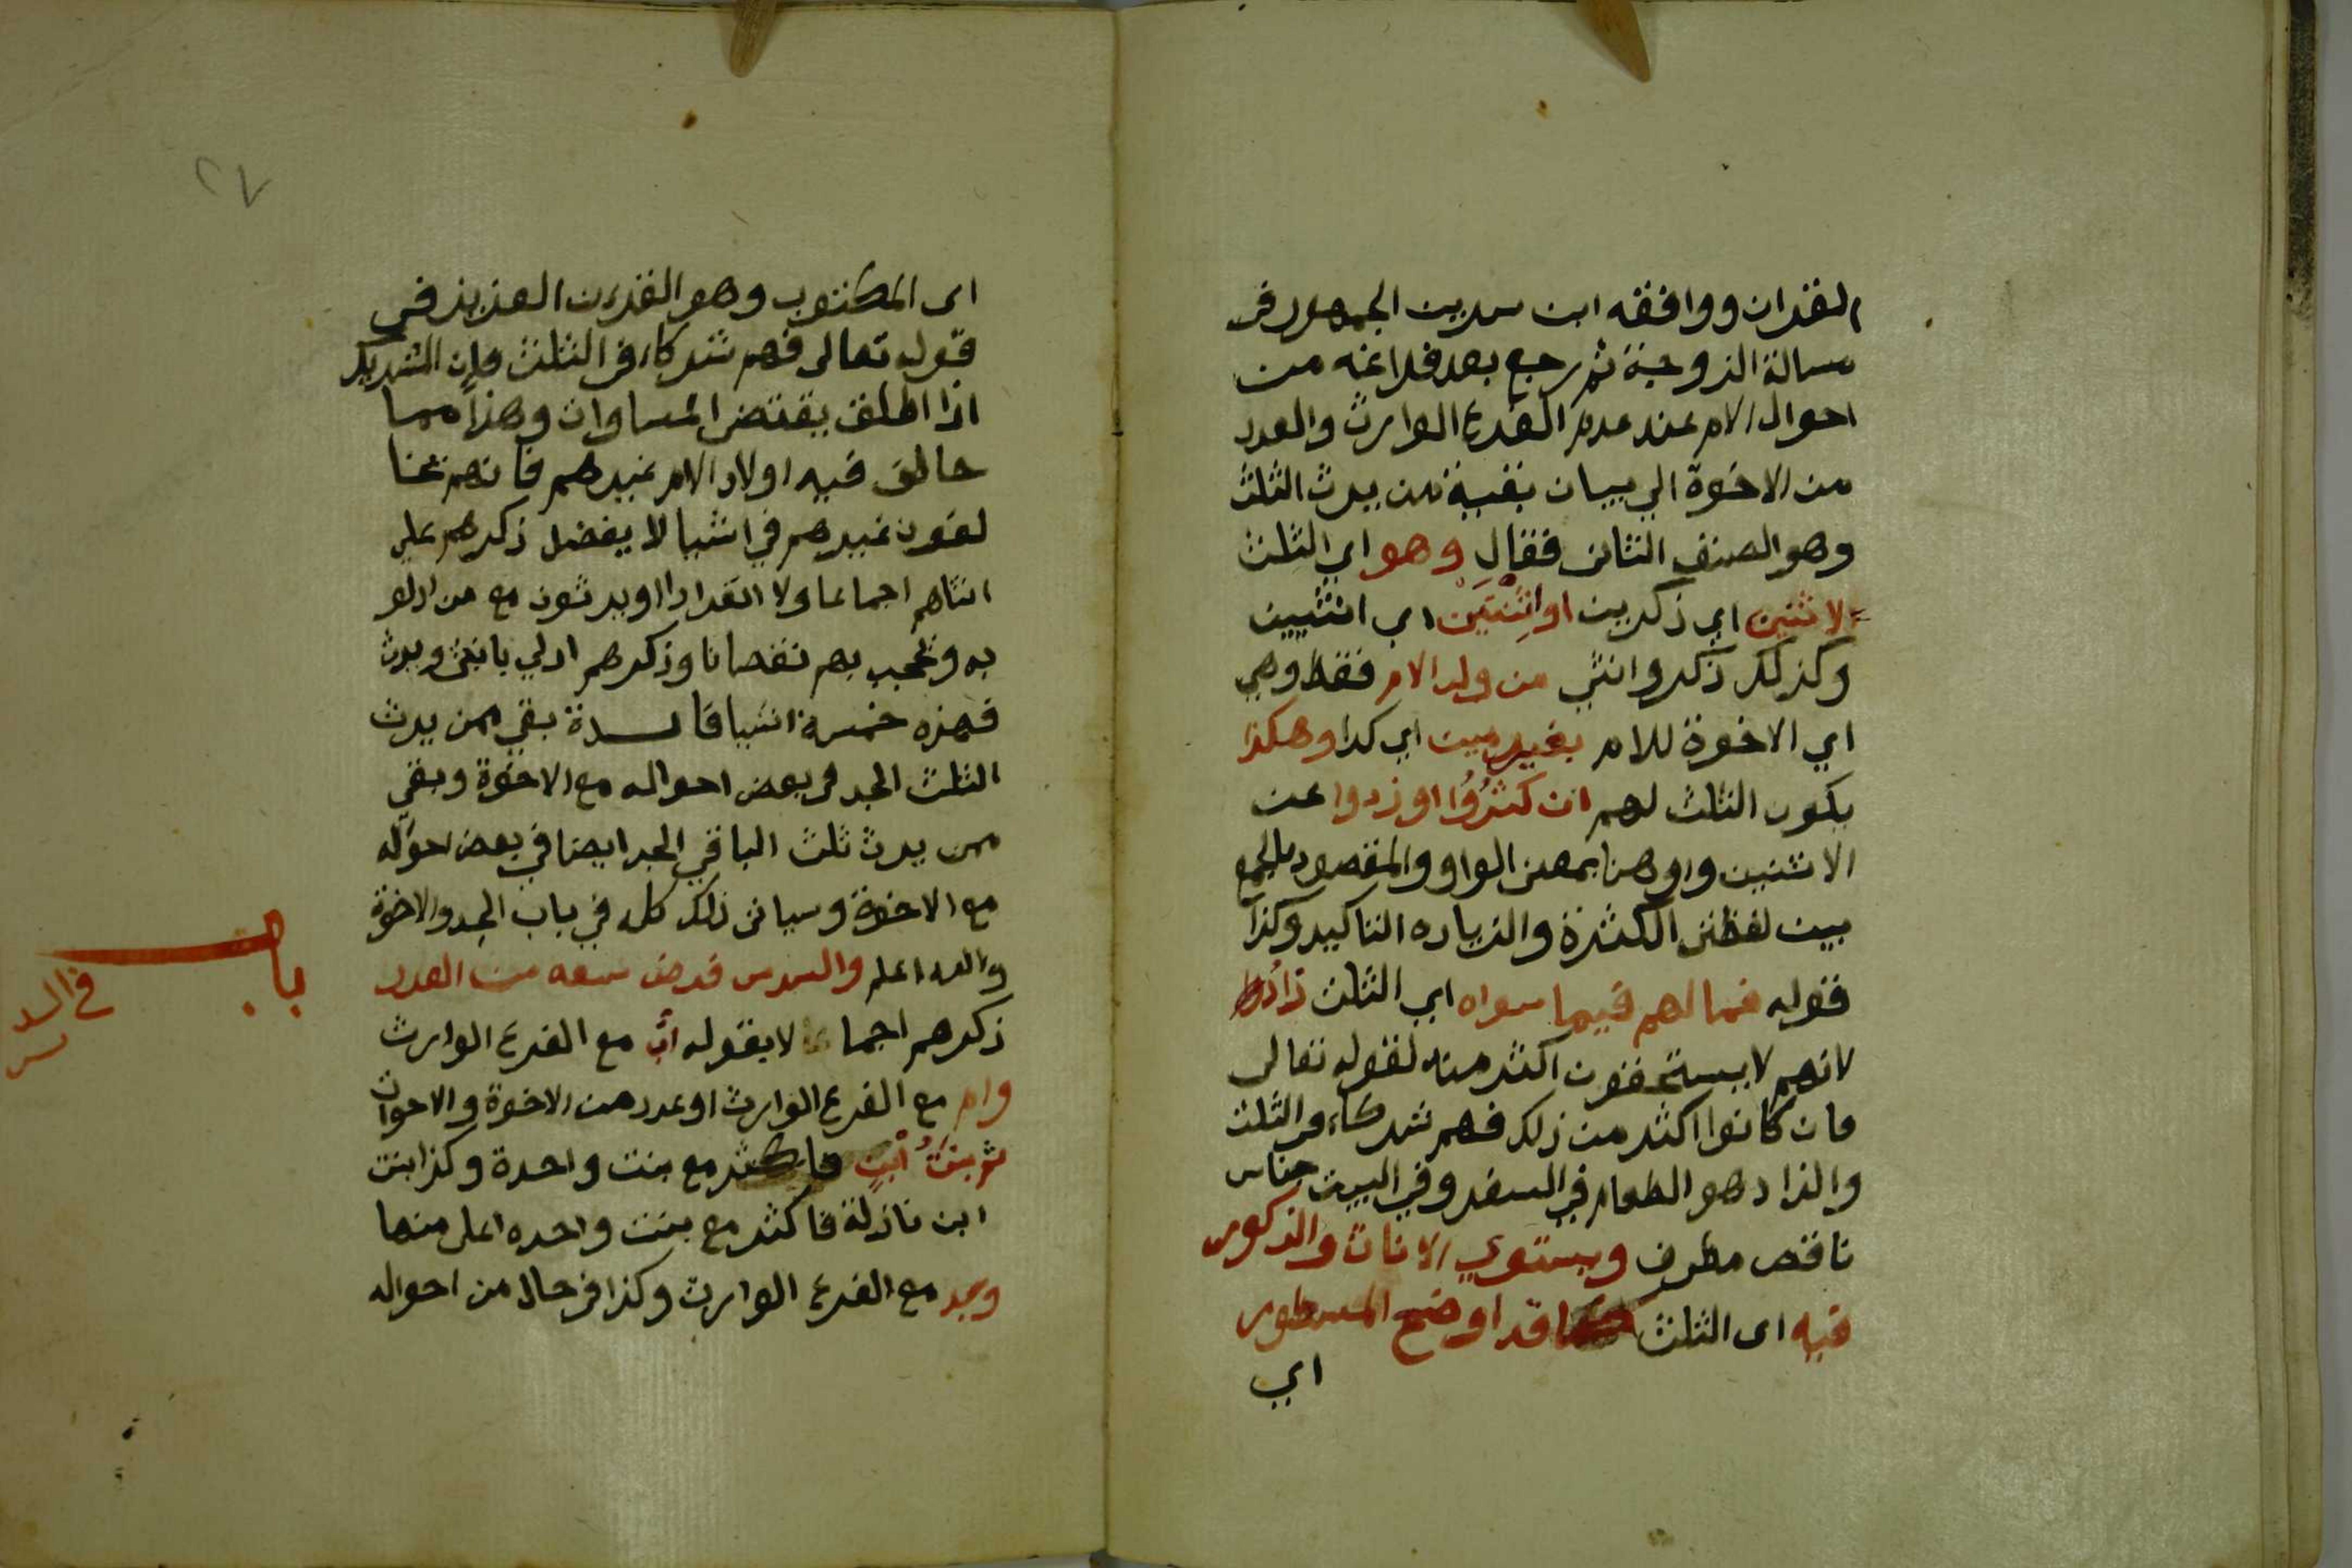 القران ووافقه ابن سيرين الجمهور في
مسالة الزوجة ثم رجع بعد فراغه من
احوال الام عند عدم الفرع الوارث والعدد
من الاخوة الي بيان بقية من يرث الثلث
وهو الصنف الثاني فقال وهو اي الثلث
لاثنين اي ذكرين او اثنتين اي انثيين
وكذلك ذكر وانثي من ولد الام فقط وهي
اي الاخوة للام بغير مين اي كذا وهكذا
يكون الثلث لهم ان كثروا او زدوا عن
الاثنين واو هنا بمعنى الواو والمقصود بالجمع
بين لفظتي الكثرة والزياده التاكيد وكذا
قوله فما لهم فيما سواه اي الثلث زاد
لانهم لا يستحقون اكثر منه لقوله تعالى
فان كانوا اكثر من ذلك فهم شركاء في الثلث
والزاد هو الطعام في السفر وفي البيت جناس
ناقص مطرف ويستوي الاناث والذكور
فيه اى الثلث كما قد اوضح المسطور
اي
٢٧
اى المكتوب وهو القرءن العزيز في
قوله تعالى فهم شركاء في الثلث فان التشريك
اذا اطلق يقتضي المساوات وهذا مما
خالف فيه اولاد الام غيرهم فانهم يخا
لفون غيرهم في اشيا لا يفضل ذكرهم على
انثاهم اجماعا ولا انفرادا ويرثون مع من ادلو
به وتحجب بهم نقصانا وذكرهم ادلي بانثى ويرث
فهذه خمسة اشيا فائدة بقي ممن يرث
الثلث الجد في بعض احواله مع الاخوة وبقي
ممن يرث ثلث الباقي الجد ايضا في بعض احواله
مع الاخوة وسياتي ذلك كله في باب الجد والاخوة
والله اعلم والسدس فرض سبعه من العدد
باب
في السد
س
ذكرهم اجمالا بقوله اب مع الفرع الوارث
وام مع الفرع الوارث او عدد من الاخوة والاخوات
ثم بنت ابن فاكثر مع بنت واحدة وكذا بنت
ابن نازلة فاكثر مع بنت واحده اعلى منها
وجد مع الفرع الوارث وكذا في حال من احواله